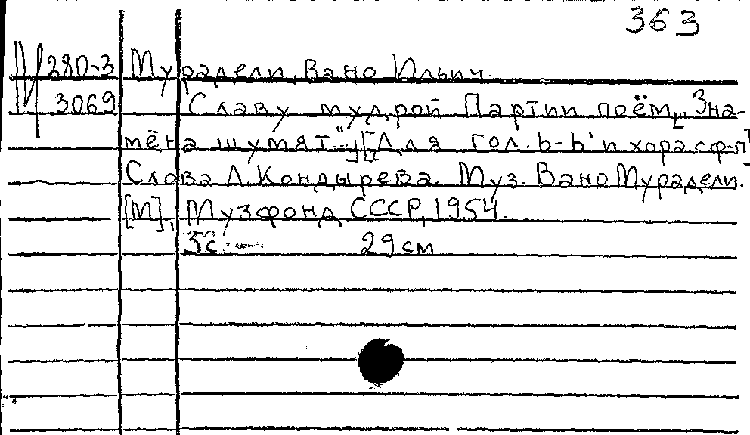 363
М 380-3 Мурадели, Вано Ильич.
3069 Славу мудрой Партии поём. „Зна-
мёна шумят" [Для гол. b-b' и хора с ф-п]
Слова Л. Кондырева. Муз. Вано Мурадели.
[М], Музфонд СССР, 1954.
3с. 29см